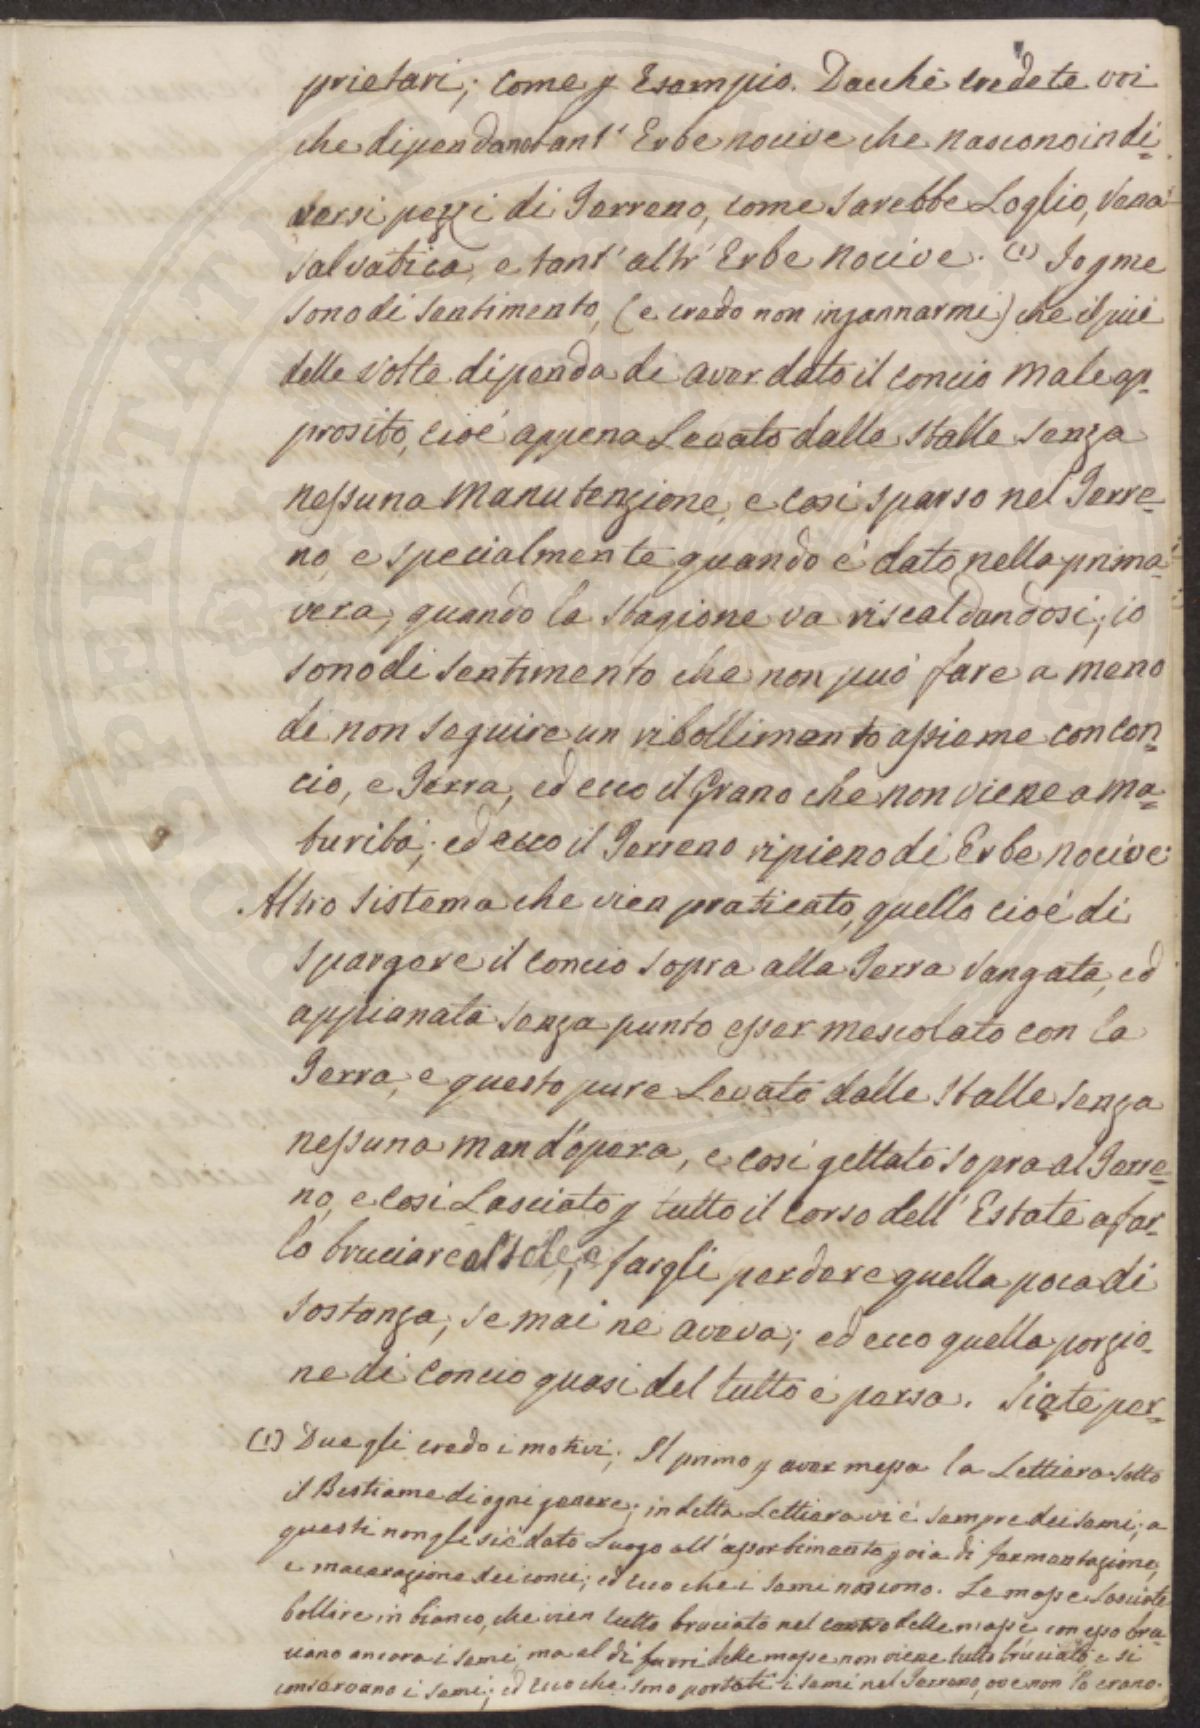 prietari; come p Esempio. Dacchè credete voi
che dipendano tant' Erbe nocive che nascono in di=
versi pezzi di Terreno, come sarebbe Loglio, Vena
salvatica, e tant' altr' Erbe nocive. (1) Io p me
sono di sentimento, (e credo non ingannarmi) che il più
delle volte dipenda di aver dato il concio male ap=
prosito, cioé appena Levato dalle stalle senza
nessuna manutenzione, e così sparso nel Terre=
no, e specialmente quando é dato nella prima=
vera, quando la stagione va riscaldandosi; io
sono di sentimento che non puó fare a meno
di non seguire un ribollimento assieme con con=
cio, e Terra, ed ecco il Grano che non viene a ma=
turitá; ed ecco il Terreno ripieno di Erbe nocive:
Altro sistema che vien praticato, quello cioé di
spargere il concio sopra alla Terra vangata, ed
appianata senza punto esser mescolato con la
Terra, e questo pure Levato dalle stalle senza
nessuna mand'opera, e così gettato sopra al Terre=
no, e così Lasciato p tutto il corso dell' Estate a far=
lo bruciare al sole, e fargli perdere quella poca di
sostanza, se mai né aveva; ed ecco quella porzio=
ne di concio quasi del tutto é persa. Siate per=
(1) Due gli credo i motivi; Il primo p aver messa la Lettiera sotto
il Bestiame di ogni genere; in detta Lettiera vi é sempre dei semi; a
questi non gli si é dato Luogo all' assorbimento p via di fermentazione,
e macerazione dei conci; ed ecco che i semi nascono. Le masse Lasciate
bollire in bianco, che vien tutto bruciato nel centro delle masse con esso bru=
ciano ancora i semi, ma al di fuori delle masse non viene tutto bruciato e si
conservano i semi; ed ecco che sono portati i semi nel Terreno, ove non Lo erano.